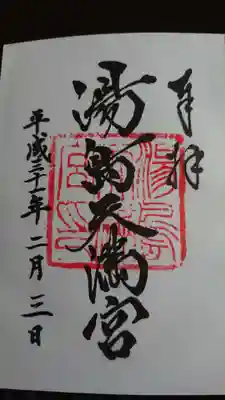 奉拝
湯島天満宮
平成三十年二月三日